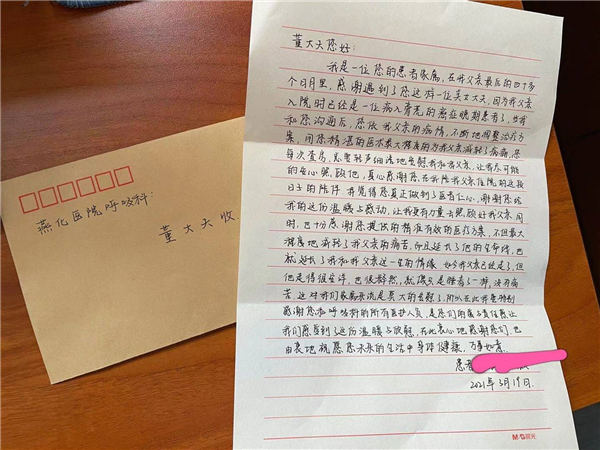 燕化医院呼吸科:
董大夫收
董大夫您好:
我是一位您的患者家属,在我父亲最后的四十多
个日月里,感谢遇到了您这样一位美女大夫,因为我父亲
入院时已经是一位病入膏肓的癌症晚期患者了,当我
和您沟通后,您依我父亲的病情,不断地调整治疗方
案,用您精湛的医术最大程度的为我父亲减轻了病痛,您
每次查房,总是轻声细语地安慰我和我父亲,让我尽可能
的安心照顾他,真心感谢您,在我陪我父亲住院的这段
日子的陪伴,我觉得您真正做到了医者仁心,谢谢您给
我的这份温暖与感动,让我更有力量去照顾好我父亲,同
时,也十分感谢您提供的精准有效的医疗方案,不但最大
程度地减轻了我父亲的病苦,而且延长了他的生命线,也
就延长了我和我父亲这一生的情缘,如今我父亲已经走了,但
他走得很安详,也很静然,就像只是睡着了一样,没有病
苦,这对我们家属来说是莫大的安慰了,所以在此我要特别
感谢您和呼吸科的所有医护人员,是您们的医者责任感让
我们感受到了这份温暖与欣慰,在此衷心地感谢您们,也
由衷地祝愿您未来的生活中身体健康,万事如意.
患者
2021年3月19日.
M&G晨光